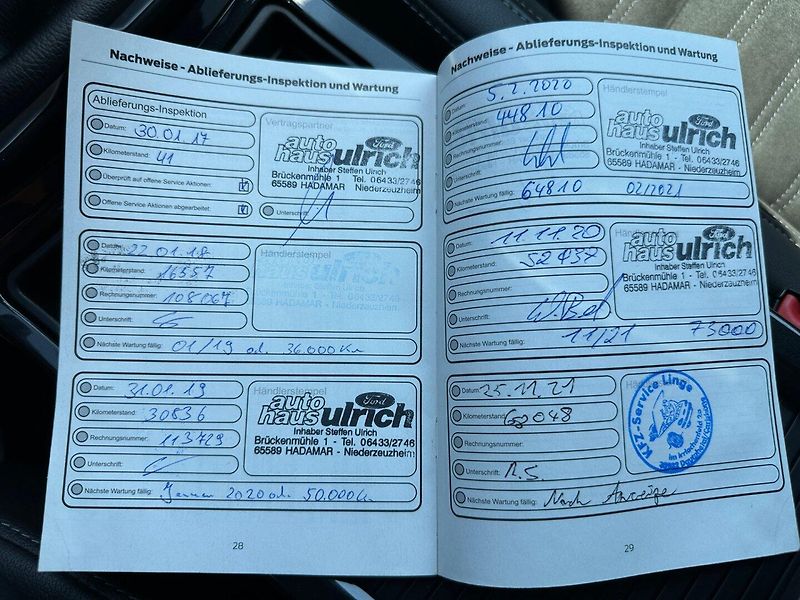 Nachweise - Ablieferungs-Inspektion und Wartung
Ablieferungs-Inspektion
Datum: 30.01.17
Kilometerstand: 41
Überprüft auf offene Service Aktionen:
Offene Service Aktionen abgearbeitet:
Vertragspartner
auto haus ulrich Ford
Inhaber Steffen Ulrich
Brückenmühle 1 - Tel. 06433/2746
65589 HADAMAR - Niederzeuzheim
Unterschrift:
Datum: 22.01.18
Kilometerstand: 16557
Rechnungsnummer: 108067
Unterschrift:
Nächste Wartung fällig: 01/19 od. 36.000 Km
Händlerstempel
auto haus ulrich
Brückenmühle 1 - Tel. 06433/2746
65589 HADAMAR - Niederzeuzheim
Datum: 31.01.19
Kilometerstand: 30836
Rechnungsnummer: 113729
Unterschrift:
Nächste Wartung fällig: Januar 2020 od. 50.000 Km
Händlerstempel
auto haus ulrich Ford
Inhaber Steffen Ulrich
Brückenmühle 1 - Tel. 06433/2746
65589 HADAMAR - Niederzeuzheim
28
Nachweise - Ablieferungs-Inspektion und Wartung
Datum: 5.2.2020
Kilometerstand: 44810
Rechnungsnummer:
Unterschrift:
Nächste Wartung fällig: 64810 02/2021
Händlerstempel
auto haus ulrich Ford
Inhaber Steffen Ulrich
Brückenmühle 1 - Tel. 06433/2746
65589 HADAMAR - Niederzeuzheim
Datum: 11.11.20
Kilometerstand:
Rechnungsnummer:
Unterschrift:
Nächste Wartung fällig: 11/21 73000
auto haus ulrich Ford
Inhaber Steffen Ulrich
Brückenmühle 1 - Tel. 06433/2746
65589 HADAMAR - Niederzeuzheim
Datum: 25.11.21
Kilometerstand:
Rechnungsnummer:
Unterschrift:
Nächste Wartung fällig: Nach Anzeige
Kfz-Service Linge
29